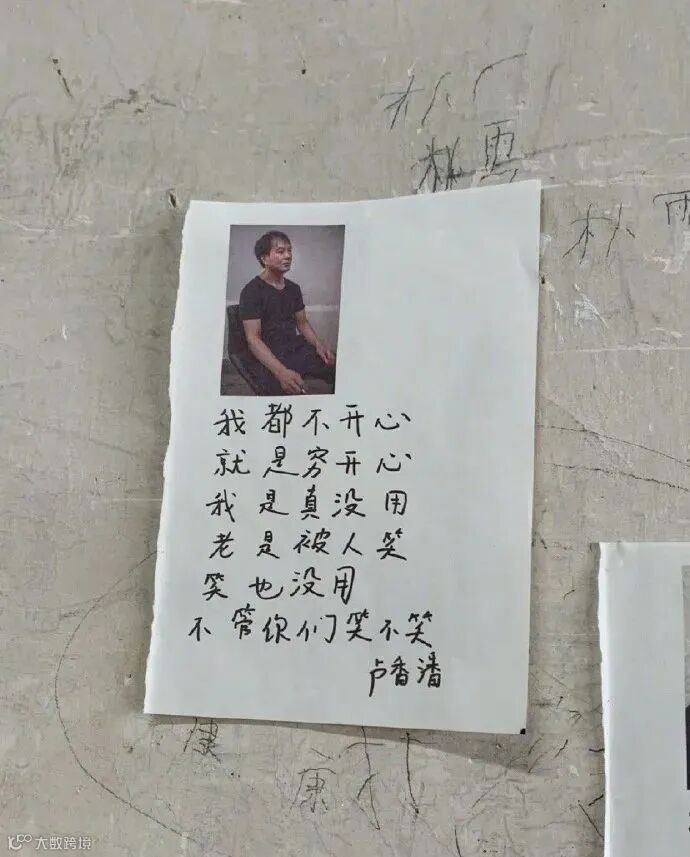 秋雨
秋雨
我都不开心
就是穷开心
我是真没用
老是被人笑
笑也没用
不管你们笑不笑
卢香潘
康
康
大数跨境